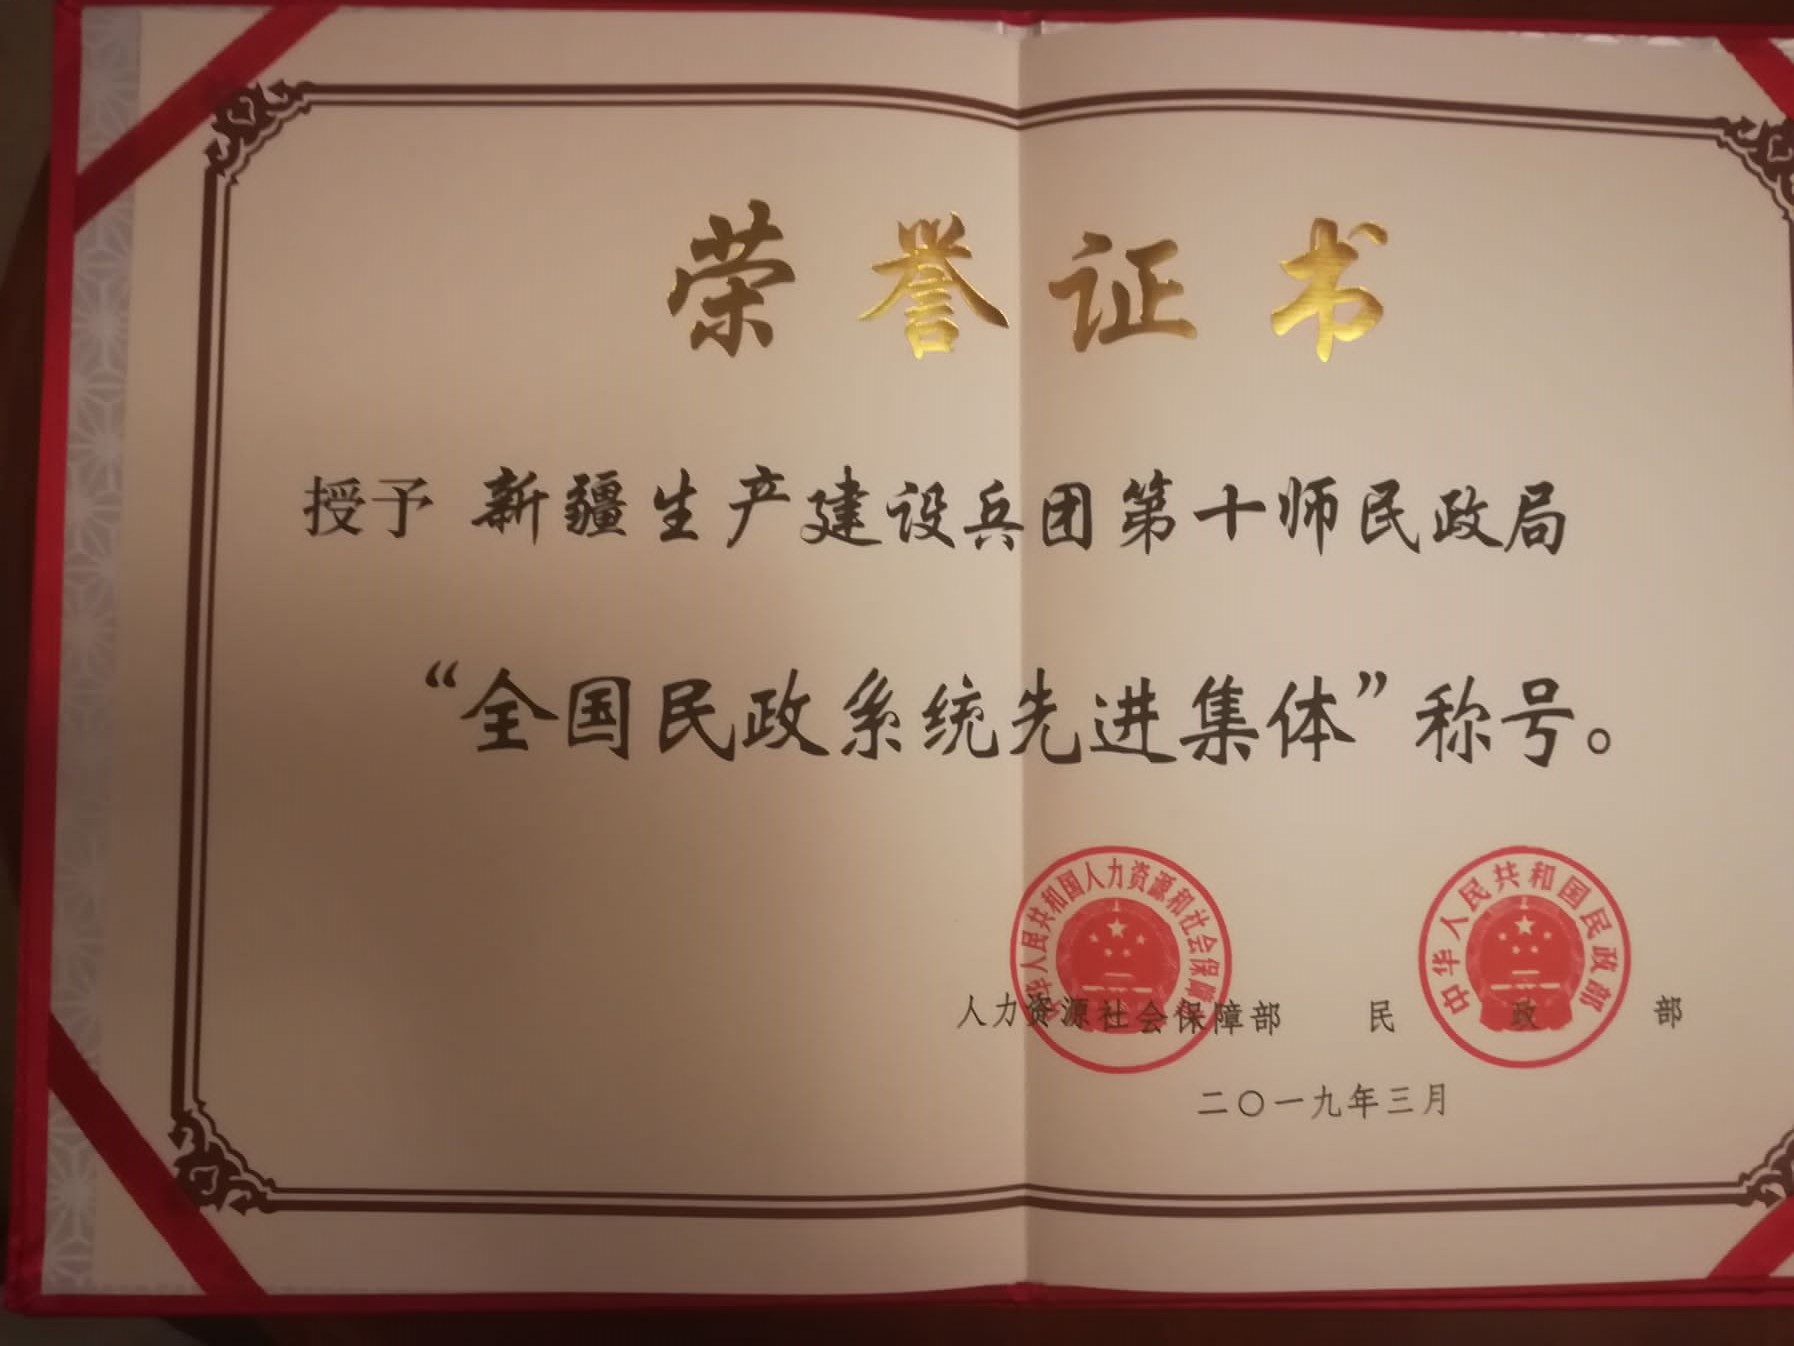 荣誉证书
授予 新疆生产建设兵团第十师民政局
“全国民政系统先进集体”称号。
中华人民共和国人力资源和社会保障部
中华人民共和国民政部
人力资源社会保障部 民政部
二〇一九年三月